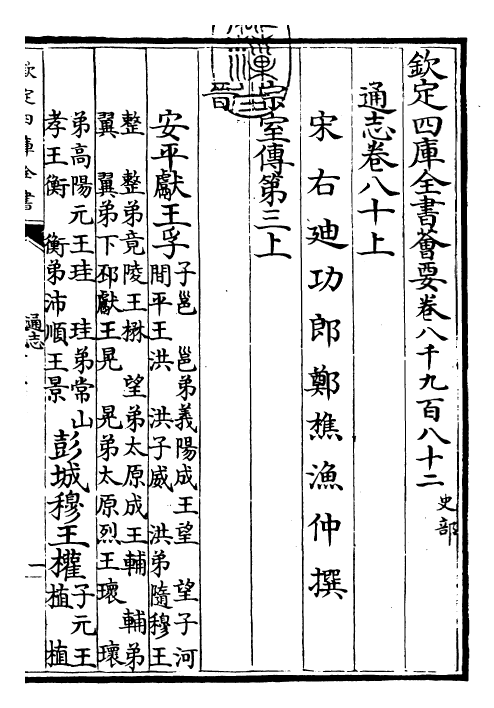 欽定四庫全書薈要卷八千九百八十二 史部
通志卷八十上
宋右迪功郎鄭樵漁仲撰
宗室傳第三上
晉
安平獻王孚 子邕 邕弟義陽成王望 望子河
間平王洪 洪子威 洪弟隨穆王
整 整弟竟陵王楙 望弟太原成王輔 輔弟
翼 翼弟下邳獻王晃 晃弟太原烈王瓌 瓌
弟高陽元王珪 珪弟常山
孝王衡 衡弟沛順王景
彭城穆王權 子元王
植 植
欽定四庫全書
通志
一